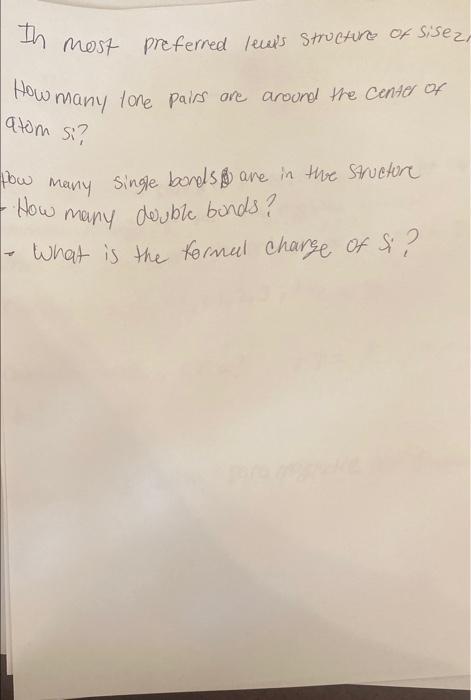 In most preferred lewis structure of SiSe2,
How many lone pairs are around the center of
atom Si?
How many single bonds are in the structure
- How many double bonds?
- What is the formal charge of Si?